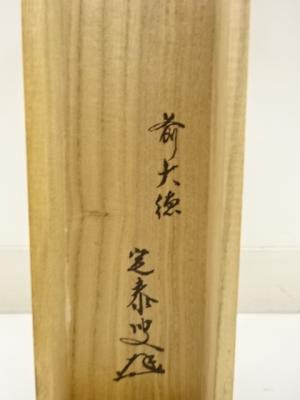 前大徳
寛泰叟